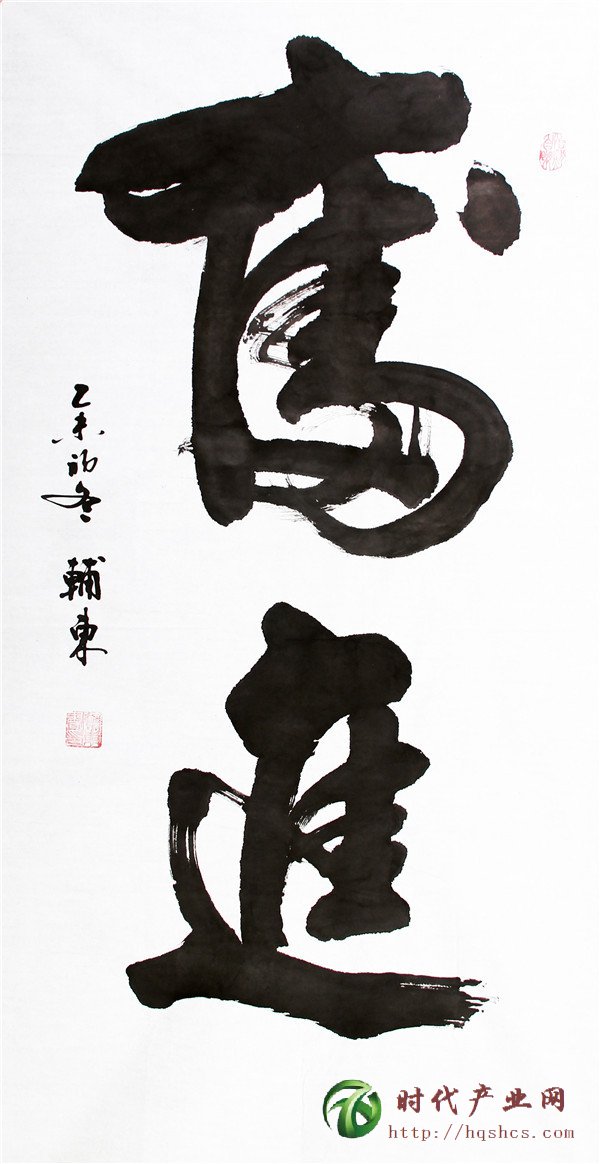 奮進
乙未初冬 輔東
时代产业网
http://hqshcs.com